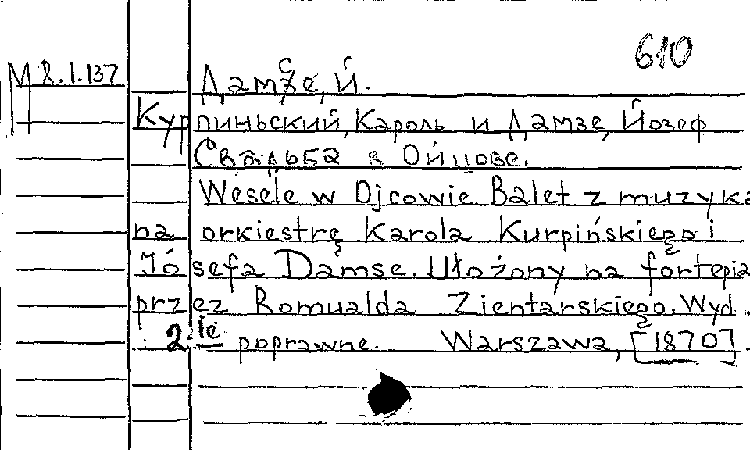 610
М 8.1.137
Дамзе, Й.
Курпиньский, Кароль и Дамзе, Йозеф
Свадьба в Ойцове.
Wesele w Ojcowie Balet z muzyka
na orkiestrę Karola Kurpińskiego i
Józefa Damse. Ułożony na fortepia
przez Romualda Zientarskiego. Wyd.
2-ie poprawne. Warszawa, [1870].